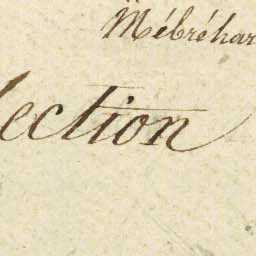 Mébréhar
lection